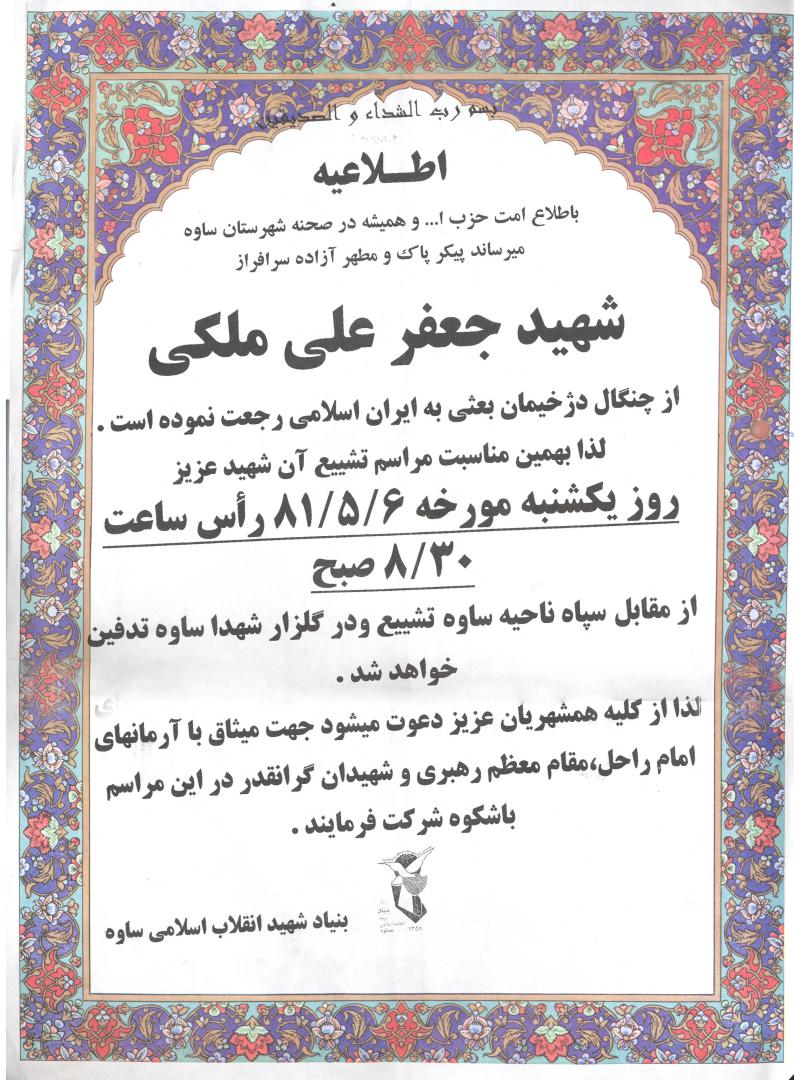 بسم رب الشهداء و الصدیقین
اطــلاعیه
باطلاع امت حزب ا... و همیشه در صحنه شهرستان ساوه
میرساند پیکر پاک و مطهر آزاده سرافراز
شهید جعفر علی ملکی
از چنگال دژخیمان بعثی به ایران اسلامی رجعت نموده است .
لذا بهمین مناسبت مراسم تشییع آن شهید عزیز
روز یکشنبه مورخه ۸۱/۵/۶ رأس ساعت
۸/۳۰ صبح
از مقابل سپاه ناحیه ساوه تشییع ودر گلزار شهدا ساوه تدفین
خواهد شد .
لذا از کلیه همشهریان عزیز دعوت میشود جهت میثاق با آرمانهای
امام راحل،مقام معظم رهبری و شهیدان گرانقدر در این مراسم
باشکوه شرکت فرمایند .
بنیاد
ساوه
۱۳۵۸
بنیاد شهید انقلاب اسلامی ساوه